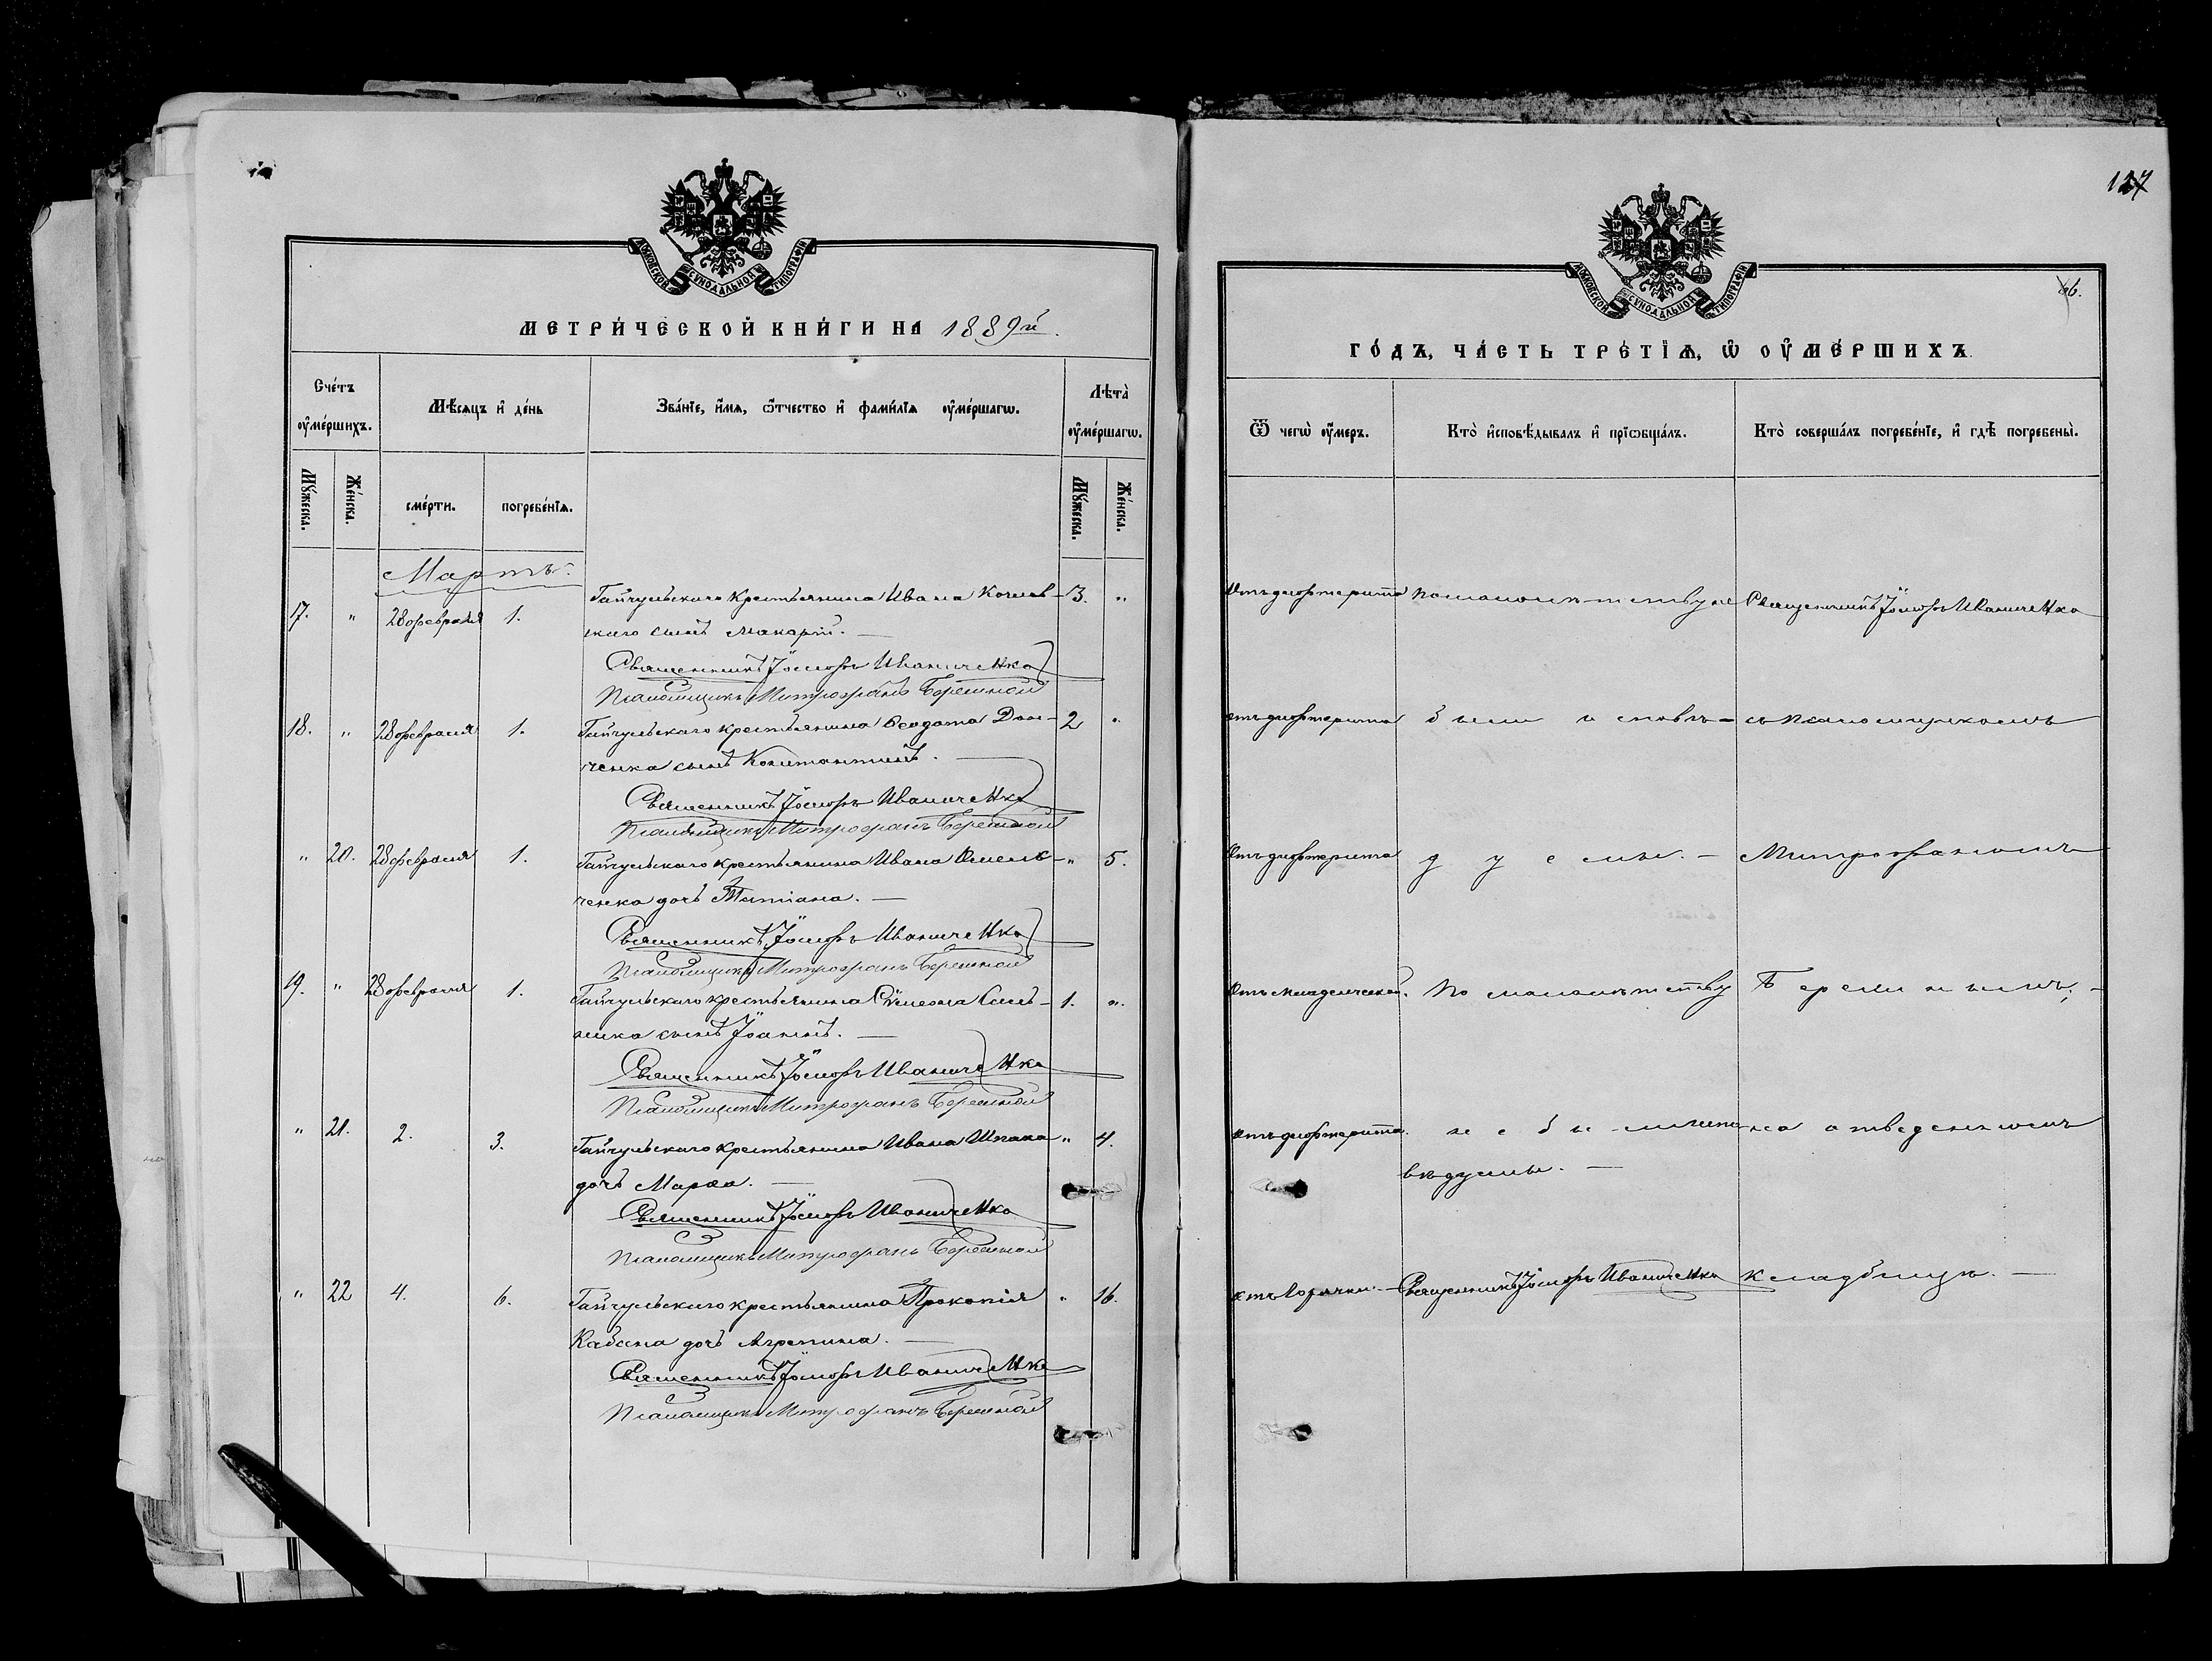 МОСКОВСКОЙ СѴНОДАЛЬНОЙ ТИПОГРАФІИ
МЕТРИ́ЧЕСКОЙ КНИ́ГИ НА 1889й.
Сче́тъ ᲂу҆ме́ршихъ.
Мѣ́сяцъ и҆ де́нь
Зва́нїе, и҆́мя, ѻ҆́тчество и҆ фами́лїя ᲂу҆ме́ршагѡ.
Лѣта̀ ᲂу҆ме́ршагѡ.
Мꙋ́жеска.
Же́нска.
сме́рти.
погребе́нїѧ.
Мꙋ́жеска.
Же́нска.
Мартъ.
17. " 28 февраля 1. Гайчульскаго крестьянина Ивана Кочев- 3. "
скаго сынъ Макарій. —
Священникъ Іосифъ Иваниченко
Псаломщикъ Митрофанъ Бережной
18. " 28 февраля 1. Гайчульскаго крестьянина Ѳеодота Дон- 2 "
ченка сынъ Константинъ. —
Священникъ Іосифъ Иваниченко
Псаломщикъ Митрофанъ Бережной
" 20. 28 февраля 1. Гайчульскаго крестьянина Ивана Омель- " 5.
ченка дочь Татіана. —
Священникъ Іосифъ Иваниченко
Псаломщикъ Митрофанъ Бережной
19. " 28 февраля 1. Гайчульскаго крестьянина Сѵмеона 1. "
сынъ Іоаннъ. —
Священникъ Іосифъ Иваниченко
Псаломщикъ Митрофанъ Бережной
" 21. 2. 3. Гайчульскаго крестьянина Ивана Шпака " 4.
дочь Марѳа. —
Священникъ Іосифъ Иваниченко
Псаломщикъ Митрофанъ Бережной
" 22 4. 6. Гайчульскаго крестьянина Прокопія " 16.
Кабана дочь Агрепина. —
Священникъ Іосифъ Иваниченко
Псаломщикъ Митрофанъ Бережной
127
МОСКОВСКОЙ СѴНОДАЛЬНОЙ ТИПОГРАФІИ
ГО́ДЪ, ЧА́СТЬ ТРЕ́ТЇѦ, Ѡ҆ ОУ҆МЕ́РШИХЪ.
Ѿ чегѡ̀ ᲂу҆́меръ.
Кто̀ и҆сповѣ́дывалъ и҆ прїѡбща́лъ.
Кто̀ соверша́лъ погребе́нїе, и҆ гдѣ̀ погребены̀.
Отъ дифтерита По малолѣтству не Священникъ Іосифъ Иваниченко
отъ дифтерита были исповѣ- съ псаломщикомъ
Отъ дифтерита дуемы. — Митрофаномъ
Отъ младенческой. По малолѣтству Бережнымъ; -
отъ дифтерита. не были испо на отведенномъ
вѣдуемы. —
отъ горячки. — Священникъ Іосифъ Иваниченко кладбищѣ. —